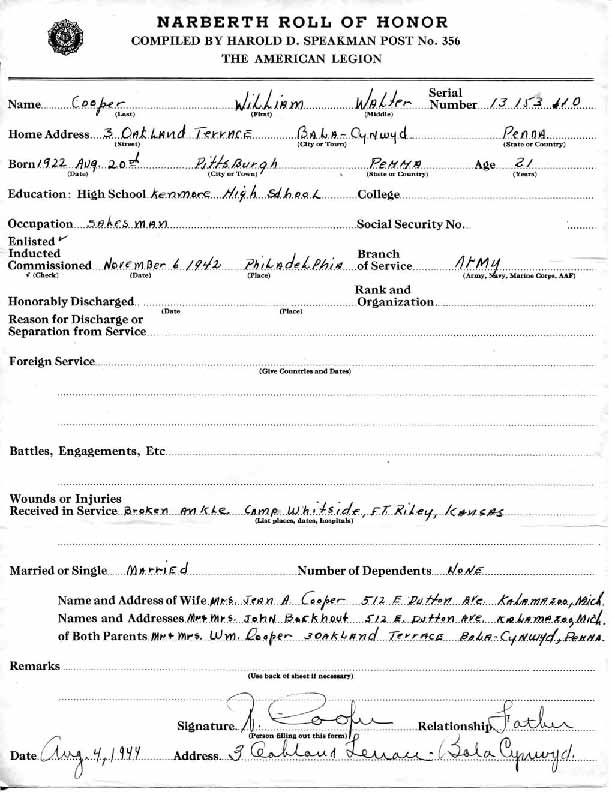 NARBERTH ROLL OF HONOR
COMPILED BY HAROLD D. SPEAKMAN POST No. 356
THE AMERICAN LEGION
Name Cooper William Walter Serial Number 13 153 410
(Last) (First) (Middle)
Home Address 3 Oakland Terrace Bala-Cynwyd Penna
(Street) (City or Town) (State or Country)
Born 1922 Aug. 20th Pittsburgh Penna Age 21
(Date) (City or Town) (State or Country) (Years)
Education: High School Kenmore High School College
Occupation Salesman Social Security No.
Enlisted ✓
Inducted Branch
Commissioned November 6 1942 Philadelphia of Service Army
√ (Check) (Date) (Place) (Army, Navy, Marine Corps, AAF)
Rank and
Honorably Discharged Organization
(Date (Place)
Reason for Discharge or
Separation from Service
Foreign Service
(Give Countries and Dates)
Battles, Engagements, Etc
Wounds or Injuries
Received in Service Broken ankle Camp Whitside, FT. Riley, Kansas
(List places, dates, hospitals)
Married or Single Married Number of Dependents None
Name and Address of Wife Mrs. Jean A Cooper 512 E Dutton Ave. Kalamazoo, Mich.
Names and Addresses Mr + Mrs. John Bockhout 512 E. Dutton Ave. Kalamazoo, Mich.
of Both Parents Mr + Mrs. Wm. Cooper 3 Oakland Terrace Bala-Cynwyd, Penna.
Remarks
(Use back of sheet if necessary)
Signature Cooper Relationship Father
(Person filling out this form)
Date Aug. 4, 1944 Address 3 Oakland Terrace - Bala Cynwyd.